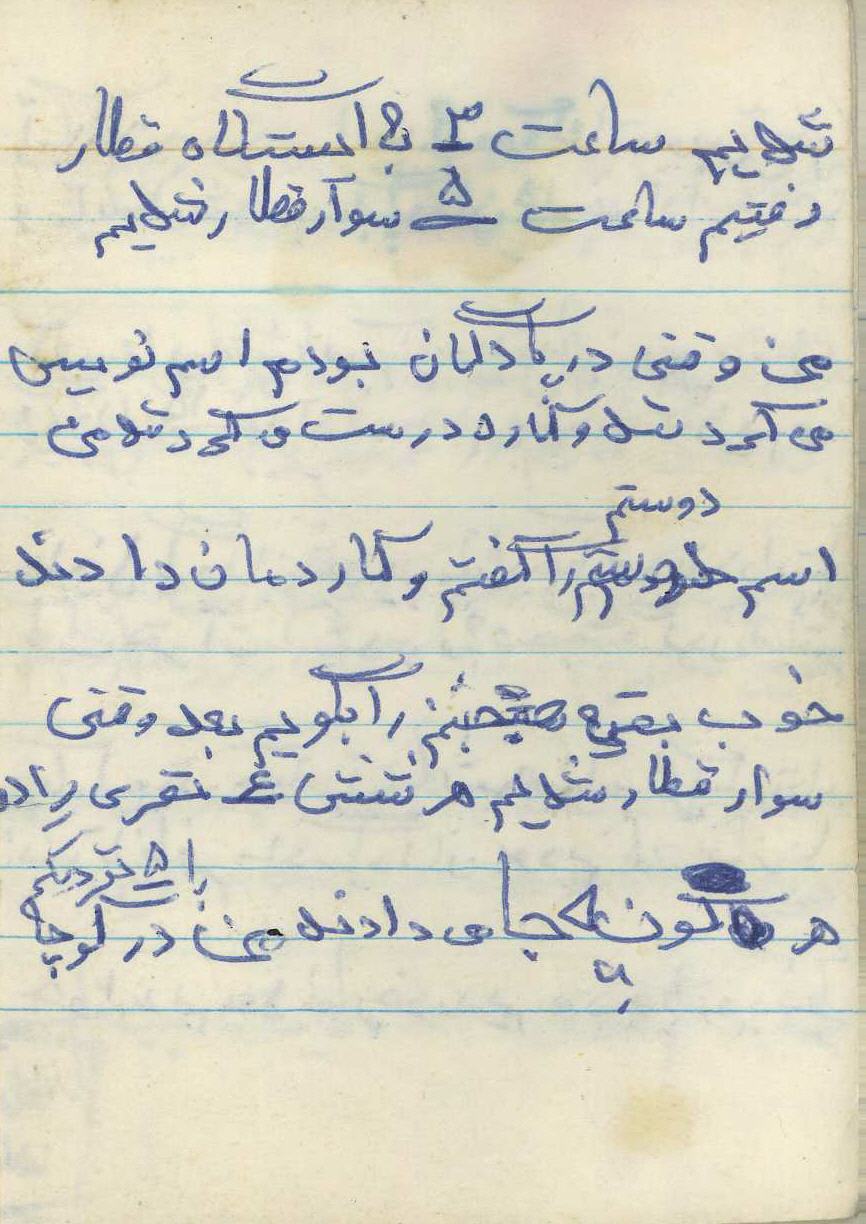 شدیم ساعت ۳ به ایستگاه قطار
رفتیم ساعت ۵ سوار قطار شدیم
من وقتی در پادگان بودم اسم نویس
می کردند و کارت درست می کردند من
دوستم
اسم را گفتم و کارت دمان دادند
خوب بقیه را بگویم بعد وقتی
سوار قطار شدیم هر شش ۶ نفری را در
با ۵ نفر دیگر
هر کوپه جا می دادند من در کوپه